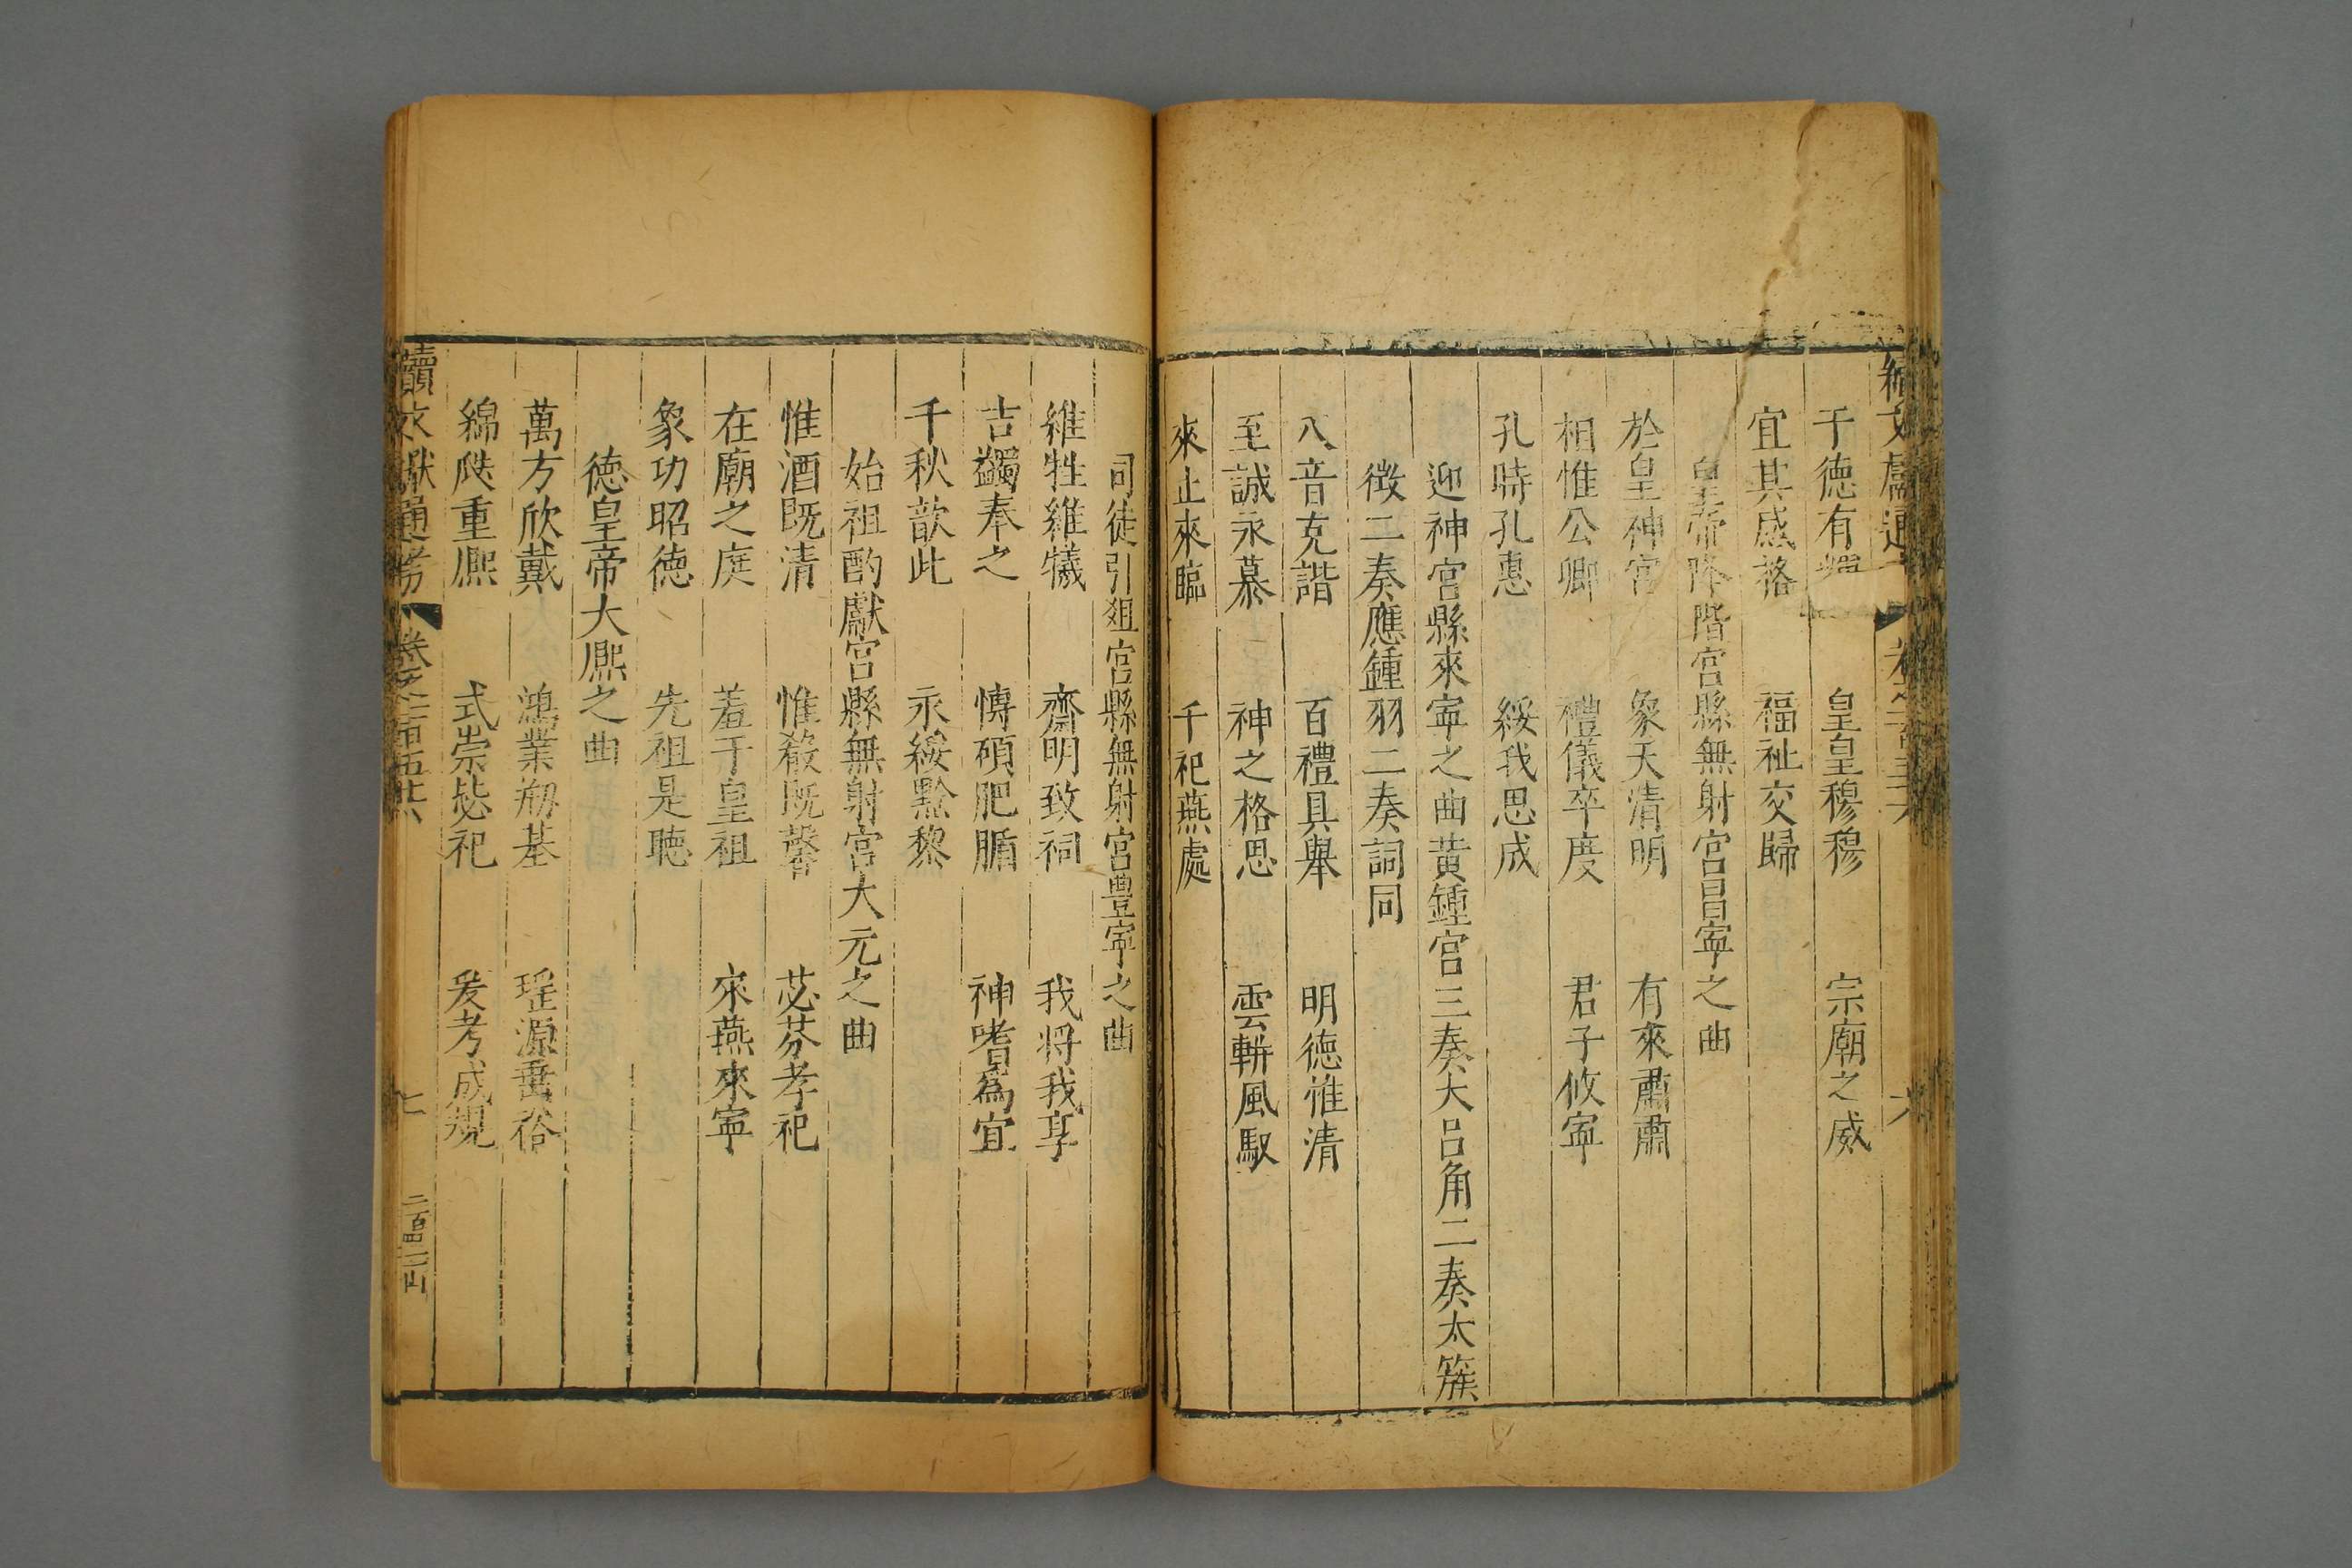 續文獻通考 卷之一百五十六 六
于德有輝 皇皇穆穆 宗廟之威
宜其感格 福祉交歸
皇帝降階宮縣無射宮昌寧之曲
於皇神宮 象天清明 有來肅肅
相惟公卿 禮儀卒度 君子攸寧
孔時孔惠 綏我思成
迎神宮縣來寧之曲黃鍾宮三奏大呂角二奏太簇
徵二奏應鍾羽二奏詞同
八音克諧 百禮具舉 明德惟清
至誠永慕 神之格思 雲軿風馭
來止來臨 千祀燕處
司徒引俎宮縣無射宮豐寧之曲
維牲維犧 齋明致祠 我將我享
吉蠲奉之 愽碩肥腯 神嗜為宜
千秋歆此 永綏黔黎
始祖酌獻宮縣無射宮大元之曲
惟酒既清 惟殽既馨 苾芬孝祀
在廟之庭 羞于皇祖 來燕來寧
象功昭德 先祖是聽
德皇帝大熈之曲
萬方欣戴 鴻業剏基 瑤源垂裕
綿瓞重熈 式崇毖祀 爰考成規
續文獻通考 卷之一百五十六 七